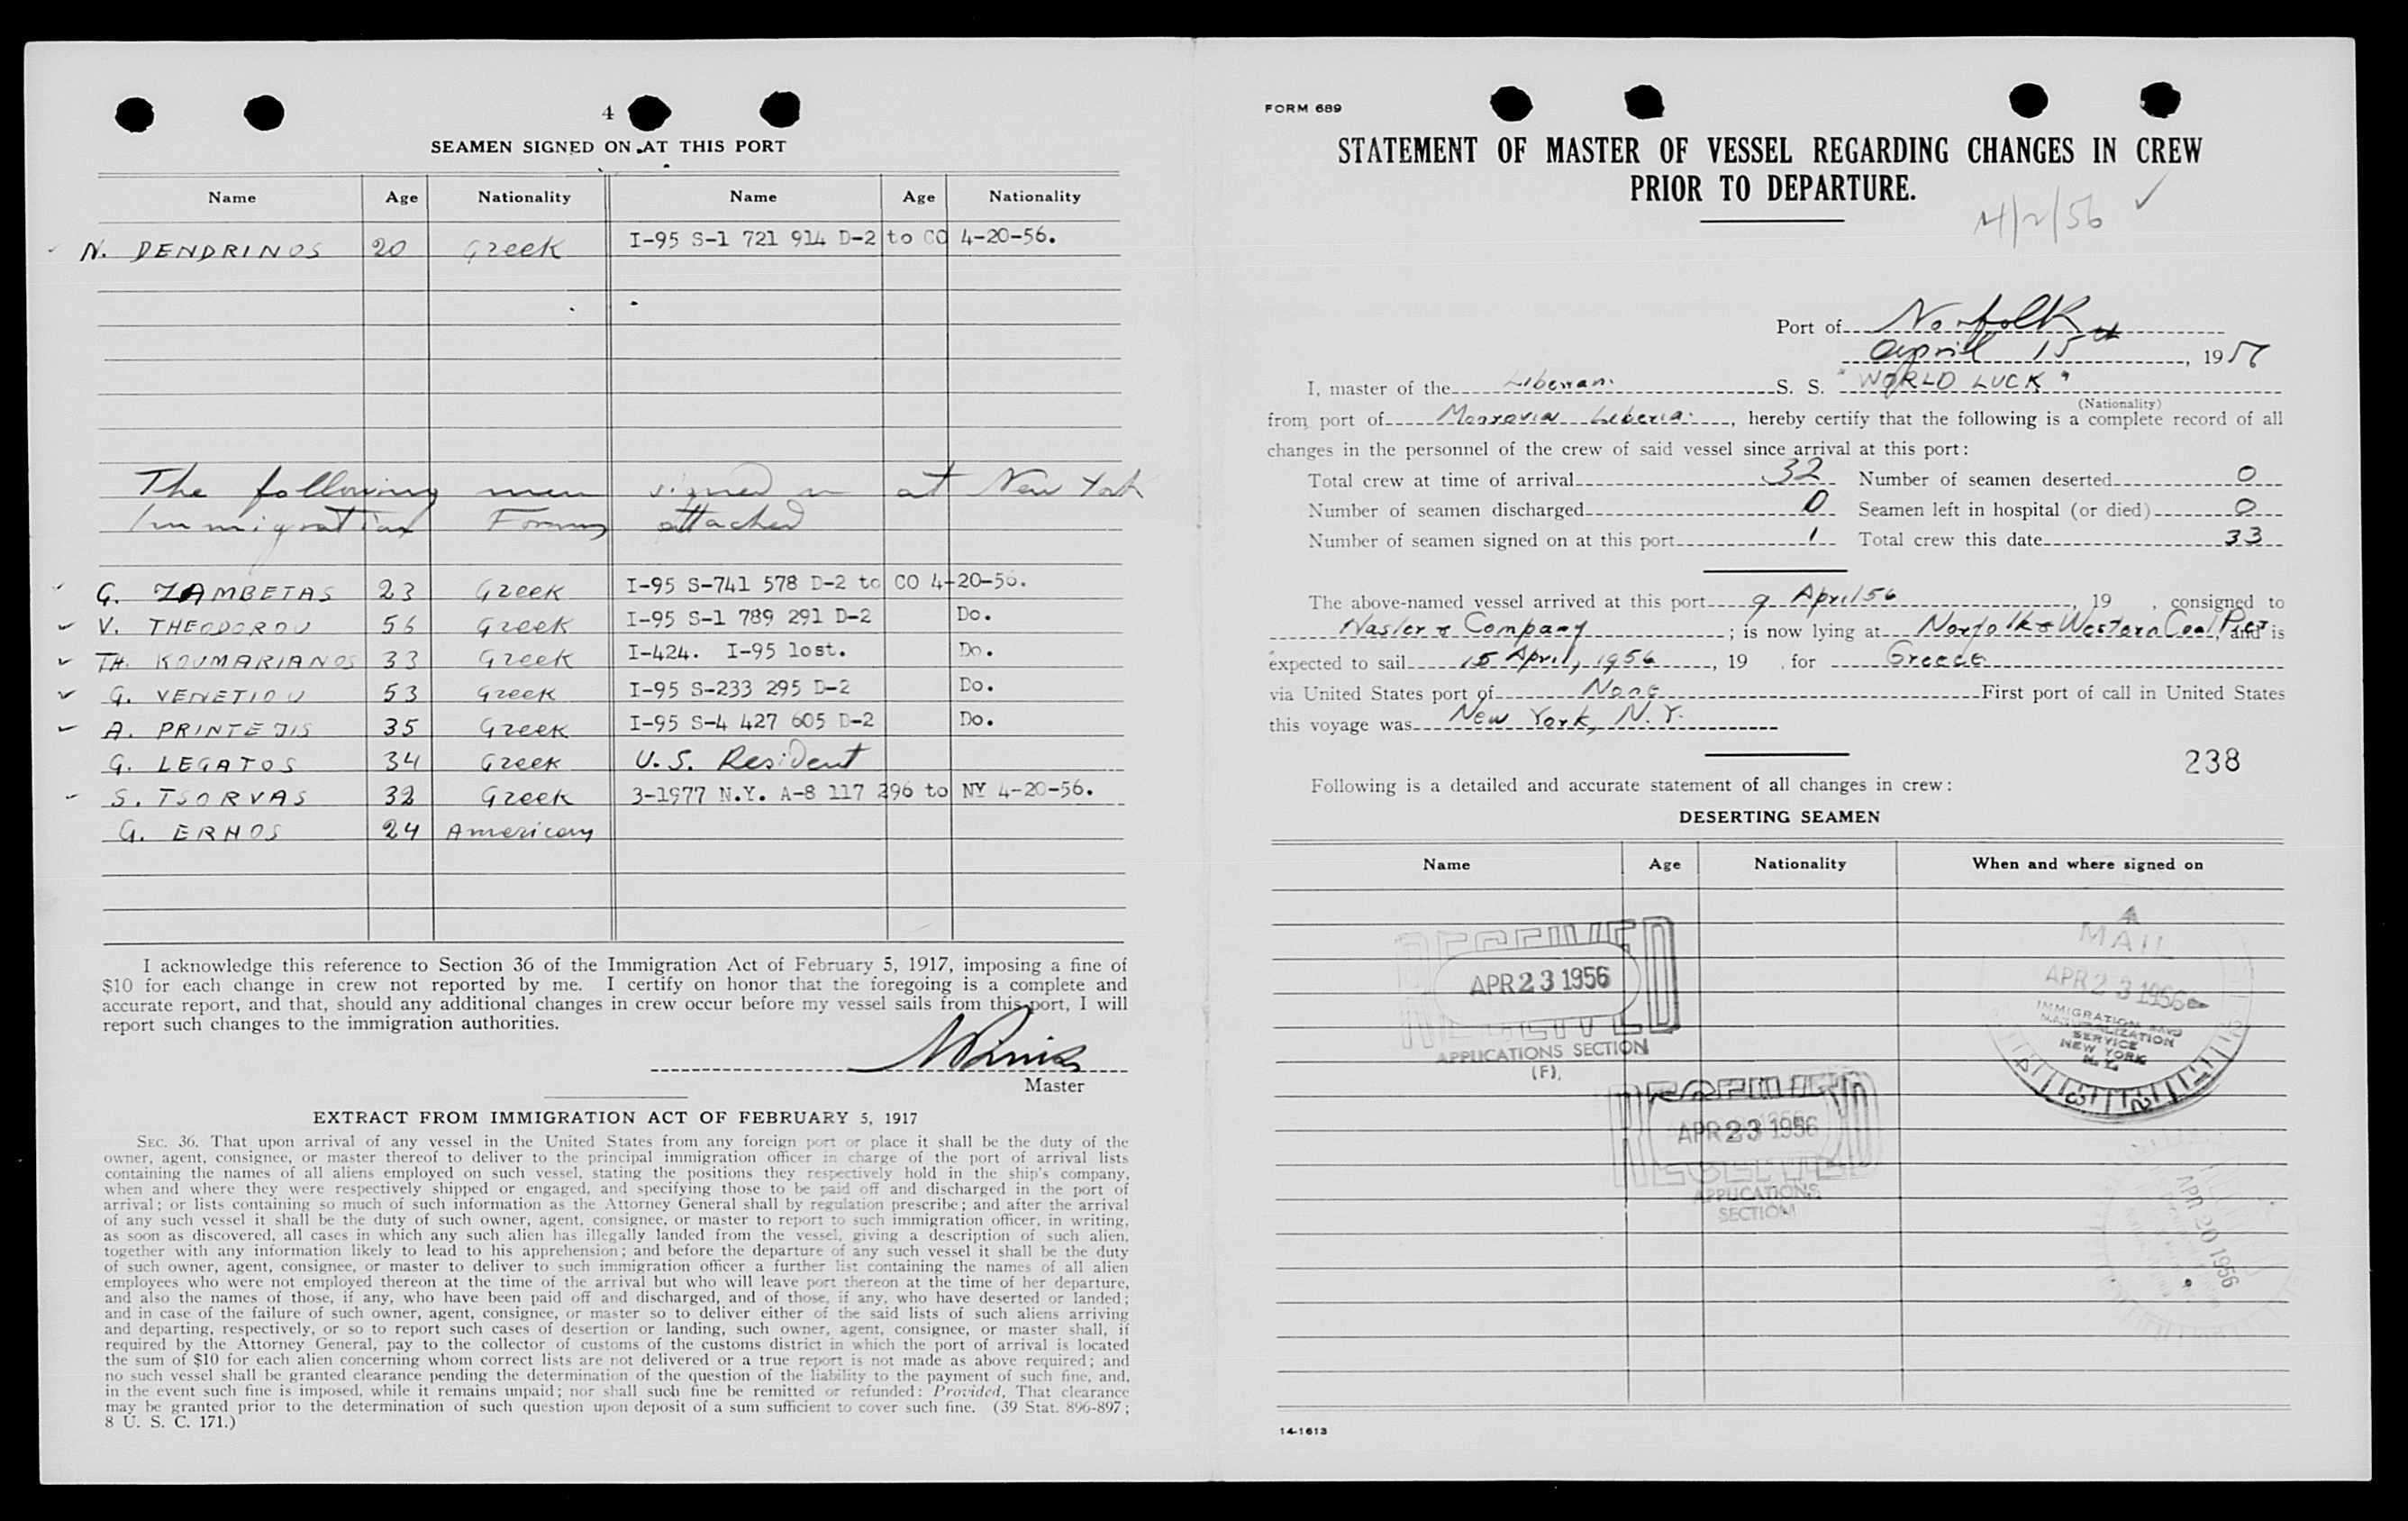 4
SEAMEN SIGNED ON AT THIS PORT
Name Age Nationality Name Age Nationality
N. DENDRINOS 20 Greek I-95 S-1 721 914 D-2 to CO 4-20-56.
The following men signed on at New York
Immigration Forms attached
G. ZAMBETAS 23 Greek I-95 S-741 578 D-2 to CO 4-20-56.
V. THEODOROU 56 Greek I-95 S-1 789 291 D-2 Do.
TH. KOUMARIANOS 33 Greek I-424. I-95 lost. Do.
G. VENETIOU 53 Greek I-95 S-233 295 D-2 Do.
A. PRINTEJIS 35 Greek I-95 S-4 427 605 D-2 Do.
G. LEGATOS 34 Greek U.S. Resident
S. TSORVAS 32 Greek 3-1977 N.Y. A-8 117 296 to NY 4-20-56.
G. ERHOS 24 American
I acknowledge this reference to Section 36 of the Immigration Act of February 5, 1917, imposing a fine of
$10 for each change in crew not reported by me. I certify on honor that the foregoing is a complete and
accurate report, and that, should any additional changes in crew occur before my vessel sails from this port, I will
report such changes to the immigration authorities.
Master
EXTRACT FROM IMMIGRATION ACT OF FEBRUARY 5, 1917
SEC. 36. That upon arrival of any vessel in the United States from any foreign port or place it shall be the duty of the
owner, agent, consignee, or master thereof to deliver to the principal immigration officer in charge of the port of arrival lists
containing the names of all aliens employed on such vessel, stating the positions they respectively hold in the ship's company,
when and where they were respectively shipped or engaged, and specifying those to be paid off and discharged in the port of
arrival; or lists containing so much of such information as the Attorney General shall by regulation prescribe; and after the arrival
of any such vessel it shall be the duty of such owner, agent, consignee, or master to report to such immigration officer, in writing,
as soon as discovered, all cases in which any such alien has illegally landed from the vessel, giving a description of such alien,
together with any information likely to lead to his apprehension; and before the departure of any such vessel it shall be the duty
of such owner, agent, consignee, or master to deliver to such immigration officer a further list containing the names of all alien
employees who were not employed thereon at the time of the arrival but who will leave port thereon at the time of her departure,
and also the names of those, if any, who have been paid off and discharged, and of those, if any, who have deserted or landed;
and in case of the failure of such owner, agent, consignee, or master so to deliver either of the said lists of such aliens arriving
and departing, respectively, or so to report such cases of desertion or landing, such owner, agent, consignee, or master shall, if
required by the Attorney General, pay to the collector of customs of the customs district in which the port of arrival is located
the sum of $10 for each alien concerning whom correct lists are not delivered or a true report is not made as above required; and
no such vessel shall be granted clearance pending the determination of the question of the liability to the payment of such fine, and,
in the event such fine is imposed, while it remains unpaid; nor shall such fine be remitted or refunded: Provided, That clearance
may be granted prior to the determination of such question upon deposit of a sum sufficient to cover such fine. (39 Stat. 896-897;
8 U. S. C. 171.)
FORM 689
STATEMENT OF MASTER OF VESSEL REGARDING CHANGES IN CREW
PRIOR TO DEPARTURE.
4/2/56
Port of Norfolk
April 15th, 1956
I, master of the Liberian S. S. "WORLD LUCK"
(Nationality)
from port of Monrovia Liberia, hereby certify that the following is a complete record of all
changes in the personnel of the crew of said vessel since arrival at this port:
Total crew at time of arrival 32 Number of seamen deserted 0
Number of seamen discharged 0 Seamen left in hospital (or died) 0
Number of seamen signed on at this port 1 Total crew this date 33
The above-named vessel arrived at this port 9 April 56, 19 , consigned to
Hasler & Company; is now lying at Norfolk & Western Coal Pier, and is
expected to sail 15 April, 1956, 19 , for Greece
via United States port of None First port of call in United States
this voyage was New York, N.Y.
238
Following is a detailed and accurate statement of all changes in crew:
DESERTING SEAMEN
Name Age Nationality When and where signed on
RECEIVED
APR 23 1956
APPLICATIONS SECTION
(F)
MAIL
APR 23 1956
IMMIGRATION AND
NATURALIZATION
SERVICE
NEW YORK
N. Y.
RECEIVED
APR 23 1956
APPLICATIONS
SECTION
APR 20 1956
14-1613